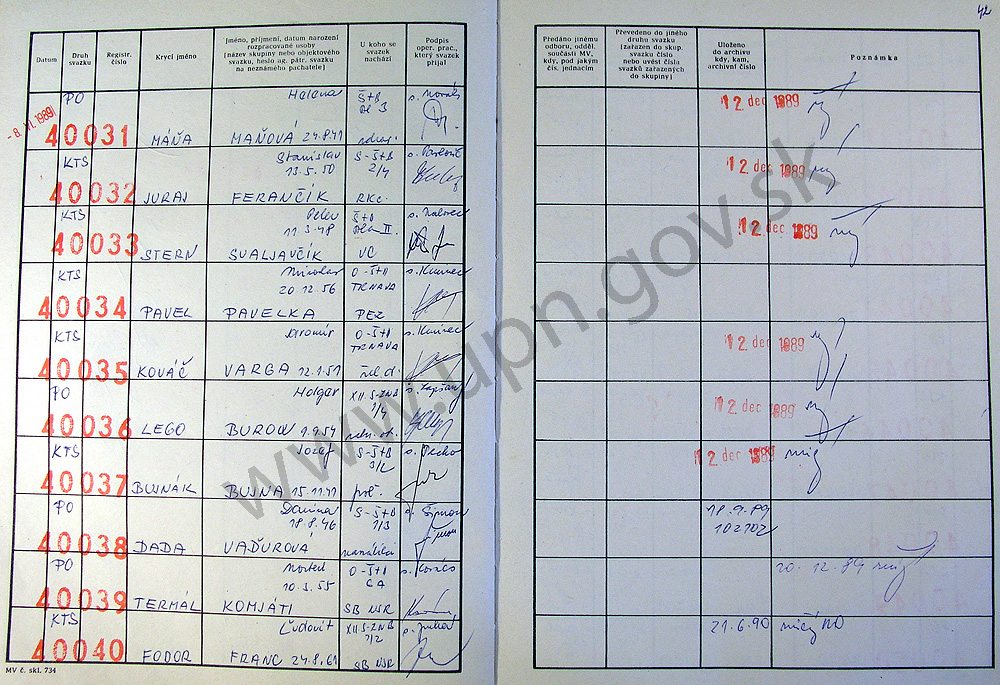 42
Datum
Druh svazku
Registr. číslo
Krycí jméno
Jméno, příjmení, datum narození rozpracované osoby
[název skupiny nebo objektového svazku, heslo ag. pátr. svazku na neznámého pachatele]
U koho se svazek nachází
Podpis oper. prac., který svazek přijal
Předáno jinému odboru, odděl. součásti MV, kdy, pod jakým čís. jednacím
Převedeno do jiného druhu svazku [zařazen do skup. svazku číslo nebo uvést čísla svazků zařazených do skupiny]
Uloženo do archivu kdy, kam, archivní číslo
Poznámka
- 8. VI. 1989
PO Helena Š+B
40031 MÁŇA MAŇOVÁ 24.8.41
12 dec 1989
KTS Stanislav S-Š+B
13.5.50 2/4
40032 JURAJ FERANČÍK RKC.
12 dec 1989
KTS Peter Š+B
11.3.48
40033 STERN SVALJAVČÍK VC
12 dec 1989
KTS O-Š+B
20.12.56 TRNAVA
40034 PAVEL PAVELKA PEZ
KTS Jaromír O-Š+B
TRNAVA
40035 KOVÁČ VARGA 12.1.51
12 dec 1989
PO Holger XII.S-ZNB
1/4
40036 LEGO BUROW 1.9.59
12 dec 1989
KTS Jozef S-Š+B
3/2
40037 BUJNÁK BUJNA 15.11.41
12 dec 1989
PO Darina S-Š+B
18.8.46 1/3
40038 DADA VAĎUROVÁ
18.9.89
102702
PO O-Š+B
10.3.55 CA
40039 TERMÁL KOMJÁTI SB NSR
20.12.89
KTS Ľudovít XII.S-ZNB
7/2
40040 FODOR FRANC 24.8.61 SB NSR
21.6.90
MV č. skl. 734
www.upn.gov.sk